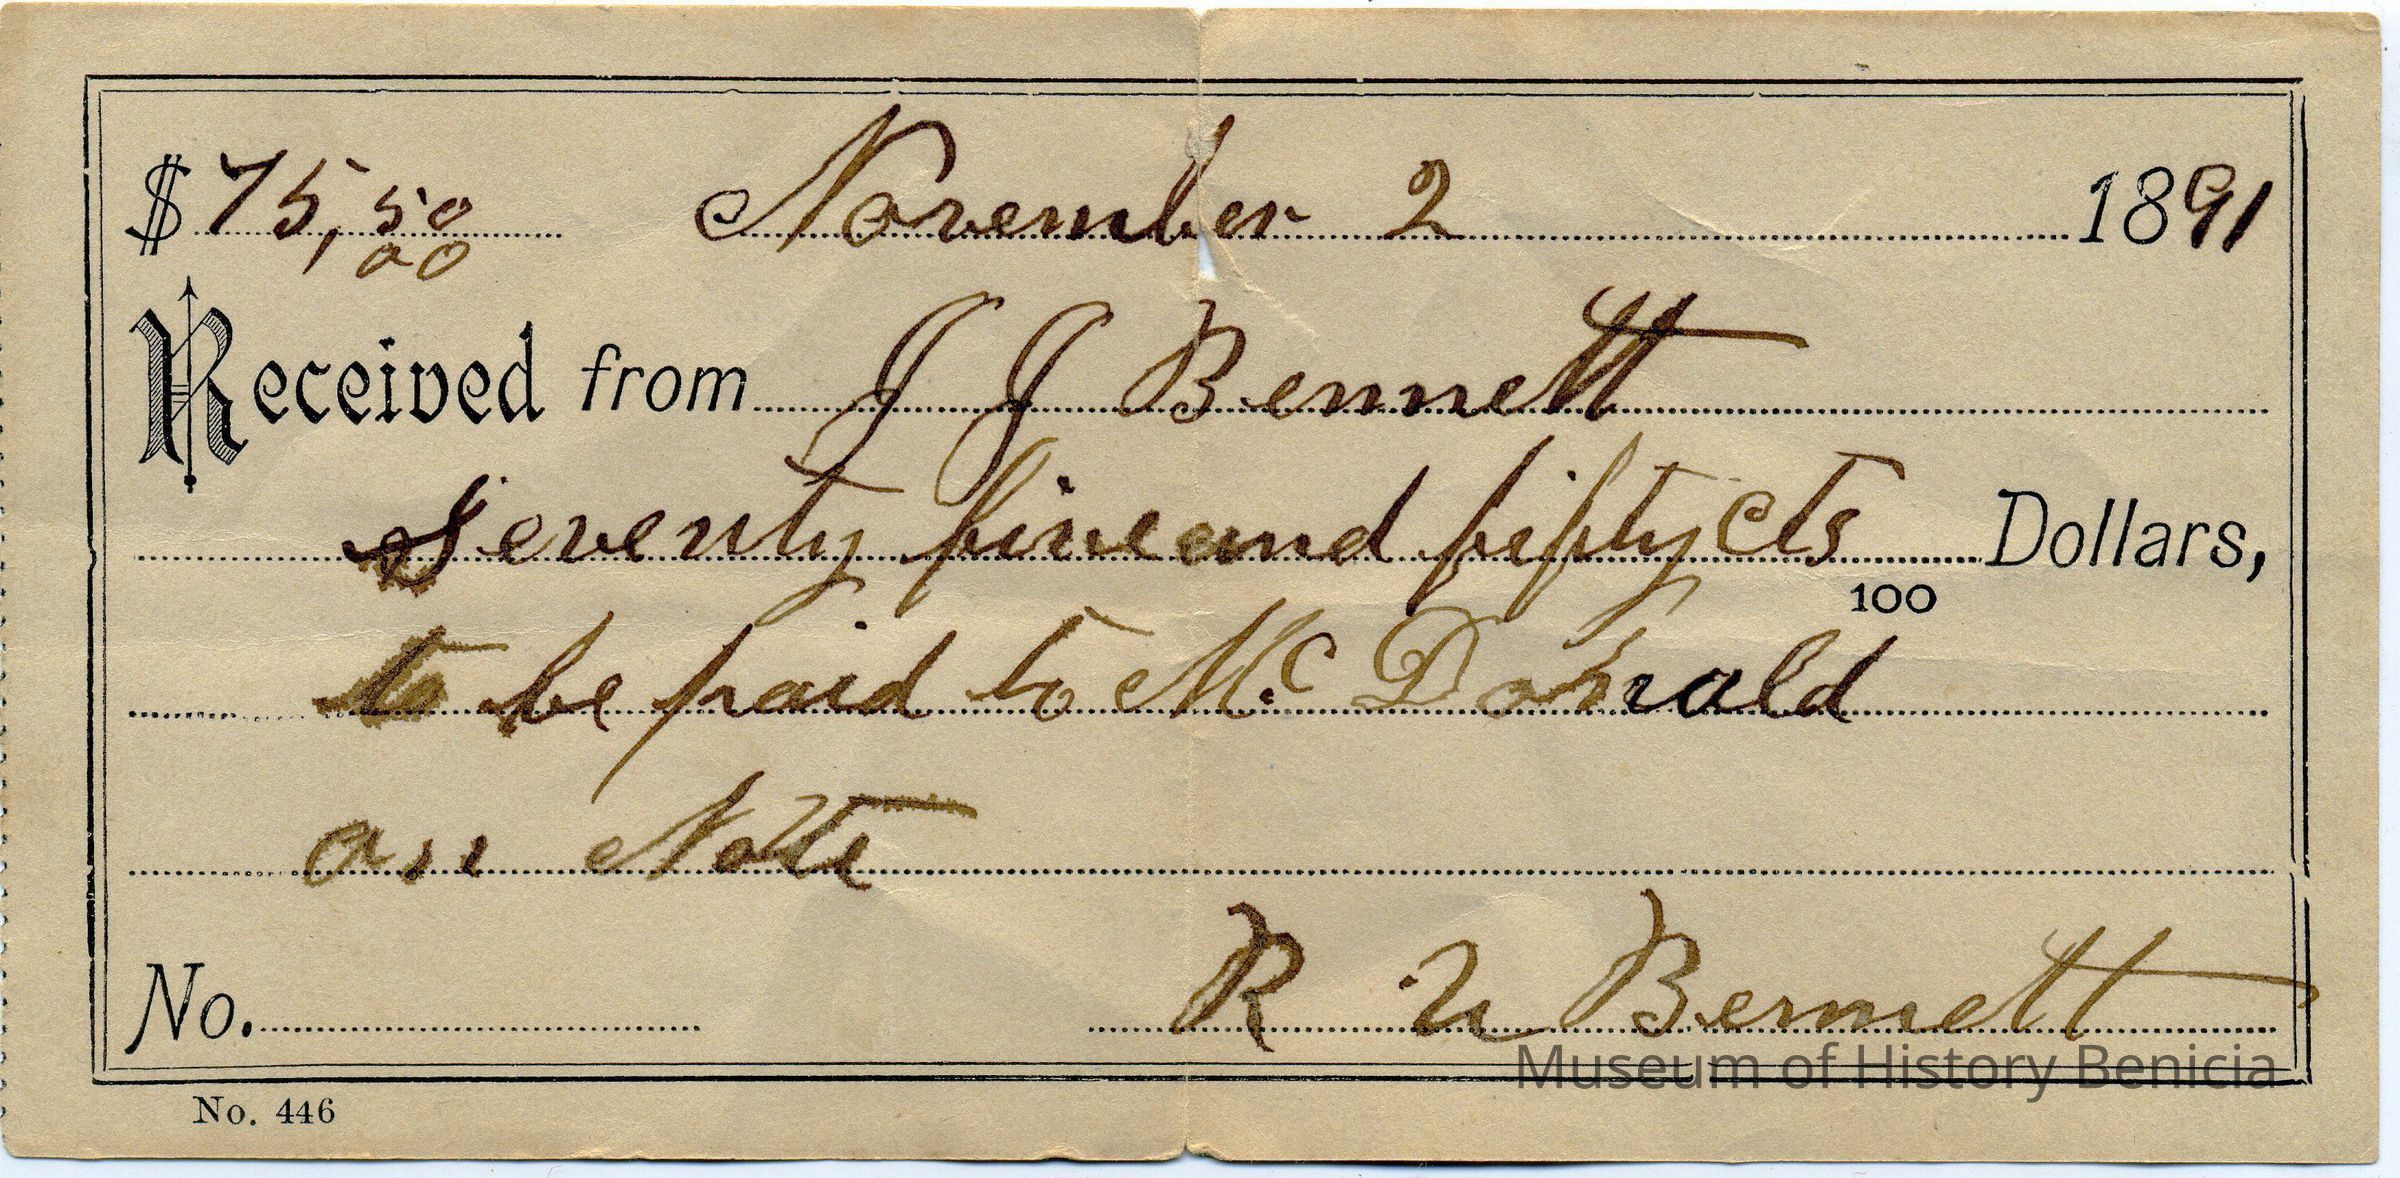 $ 75,50/00 November 2 1891
Received from J J Bennett
Seventy five and fifty cts/100 Dollars,
to be paid to McDonald
on Note
No. R N Bennett
Museum of History Benicia
No. 446